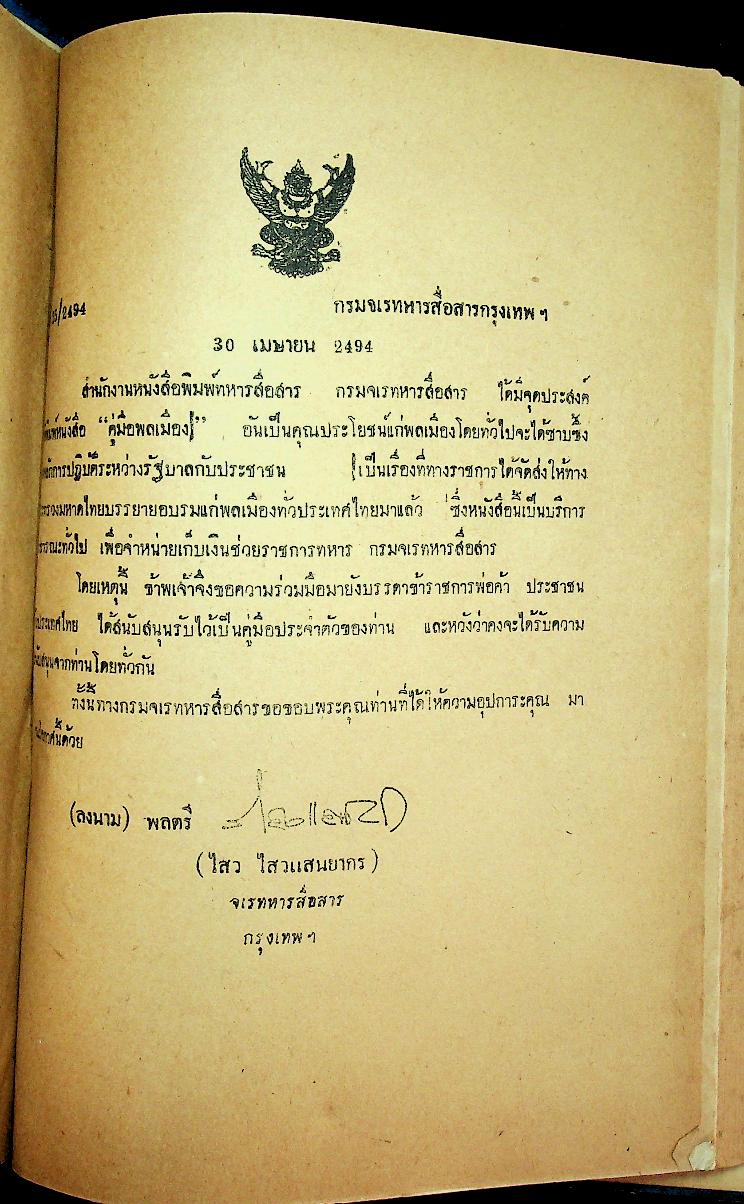 /2494
กรมจเรทหารสื่อสารกรุงเทพ ฯ
30 เมษายน 2494
สำนักงานหนังสือพิมพ์ทหารสื่อสาร กรมจเรทหารสื่อสาร ได้มีจุดประสงค์
หนังสือ “คู่มือพลเมือง” อันเป็นคุณประโยชน์แก่พลเมืองโดยทั่วไปจะได้ซาบซึ้ง
การปฏิบัติระหว่างรัฐบาลกับประชาชน เป็นเรื่องที่ทางราชการได้จัดส่งให้ทาง
มหาดไทยบรรยายอบรมแก่พลเมืองทั่วประเทศไทยมาแล้ว ซึ่งหนังสือนี้เป็นบริการ
ทั่วไป เพื่อจำหน่ายเก็บเงินช่วยราชการทหาร กรมจเรทหารสื่อสาร
โดยเหตุนี้ ข้าพเจ้าจึงขอความร่วมมือมายังบรรดาข้าราชการพ่อค้า ประชาชน
ประเทศไทย ได้สนับสนุนรับไว้เป็นคู่มือประจำตัวของท่าน และหวังว่าคงจะได้รับความ
จากท่านโดยทั่วกัน
ทั้งนี้ทางกรมจเรทหารสื่อสารขอขอบพระคุณท่านที่ได้ให้ความอุปการะคุณ มา
นี้ด้วย
(ลงนาม) พลตรี
(ไสว ไสวแสนยากร)
จเรทหารสื่อสาร
กรุงเทพ ฯ